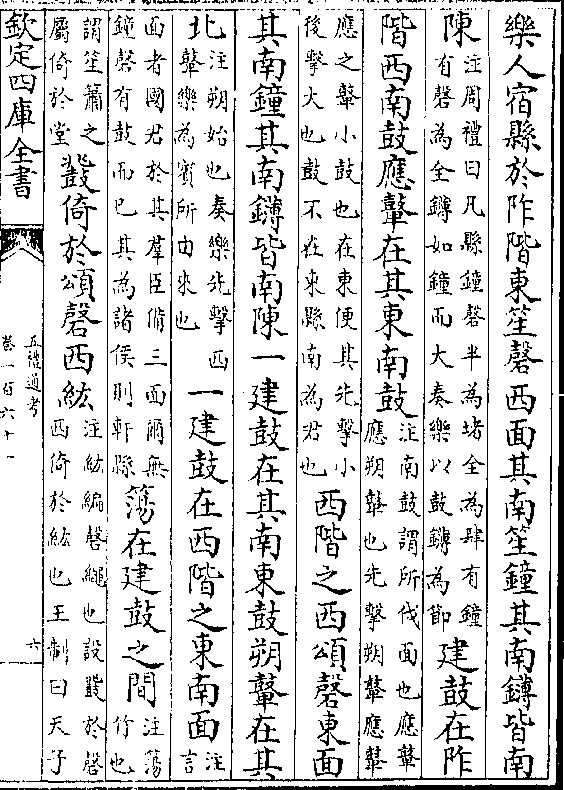 樂人宿縣於阼階東笙磬西面其南笙鐘其南鑮皆南
陳注周禮曰凡縣鐘磬半為堵全為肆有鐘有磬為全鑮如鐘而大奏樂以鼓鑮為節建鼓在阼
階西南鼓應鼙在其東南鼓注南鼓謂所伐面也應鼙應朔鼙也先擊朔鼙應鼙
應之鼙小鼓也在東便其先擊小後擊大也鼓不在東縣南為君也西階之西頌磬東面
其南鐘其南鑮皆南陳一建鼓在其南東鼓朔鼙在其
北注朔始也奏樂先擊西鼙樂為賓所由來也一建鼓在西階之東南面注言
面者國君於其羣臣備三面爾無鐘磬有鼓而已其為諸侯則軒縣簜在建鼓之間注簜竹也
謂笙簫之屬倚於堂鼗倚於頌磬西紘注紘編磬繩也設鼗於磬西倚於紘也王制曰天子
欽定四庫全書
五禮通考
卷一百六十一
六